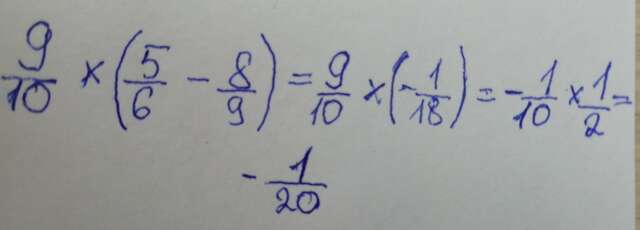 9/10 × (5/6 − 8/9) = 9/10 × (−1/18) = −1/10 × 1/2 =
−1/20